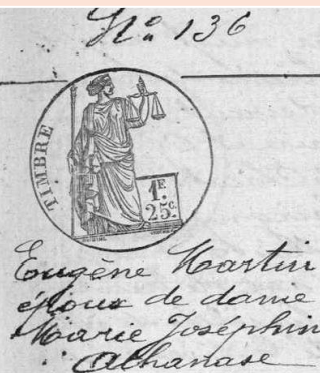 No. 136
TIMBRE
1F
25c.
Eugène Martin
époux de dame
Marie Joséphin
Athanase